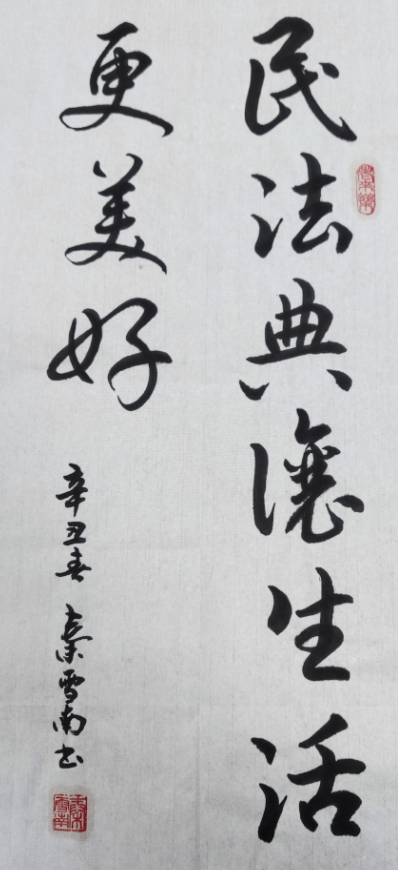 民法典讓生活
更美好
辛丑春 秦雪南书